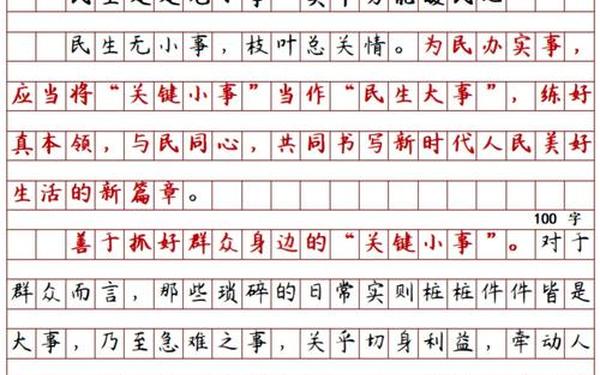 民生无小事，枝叶总关情。为民办实事，
应当将“关键小事”当作“民生大事”，练好
真本领，与民同心，共同书写新时代人民美好
生活的新篇章。
100 字
善于抓好群众身边的“关键小事”。对于
群众而言，那些琐碎的日常实则桩桩件件皆是
大事，乃至急难之事，关乎切身利益，牵动人